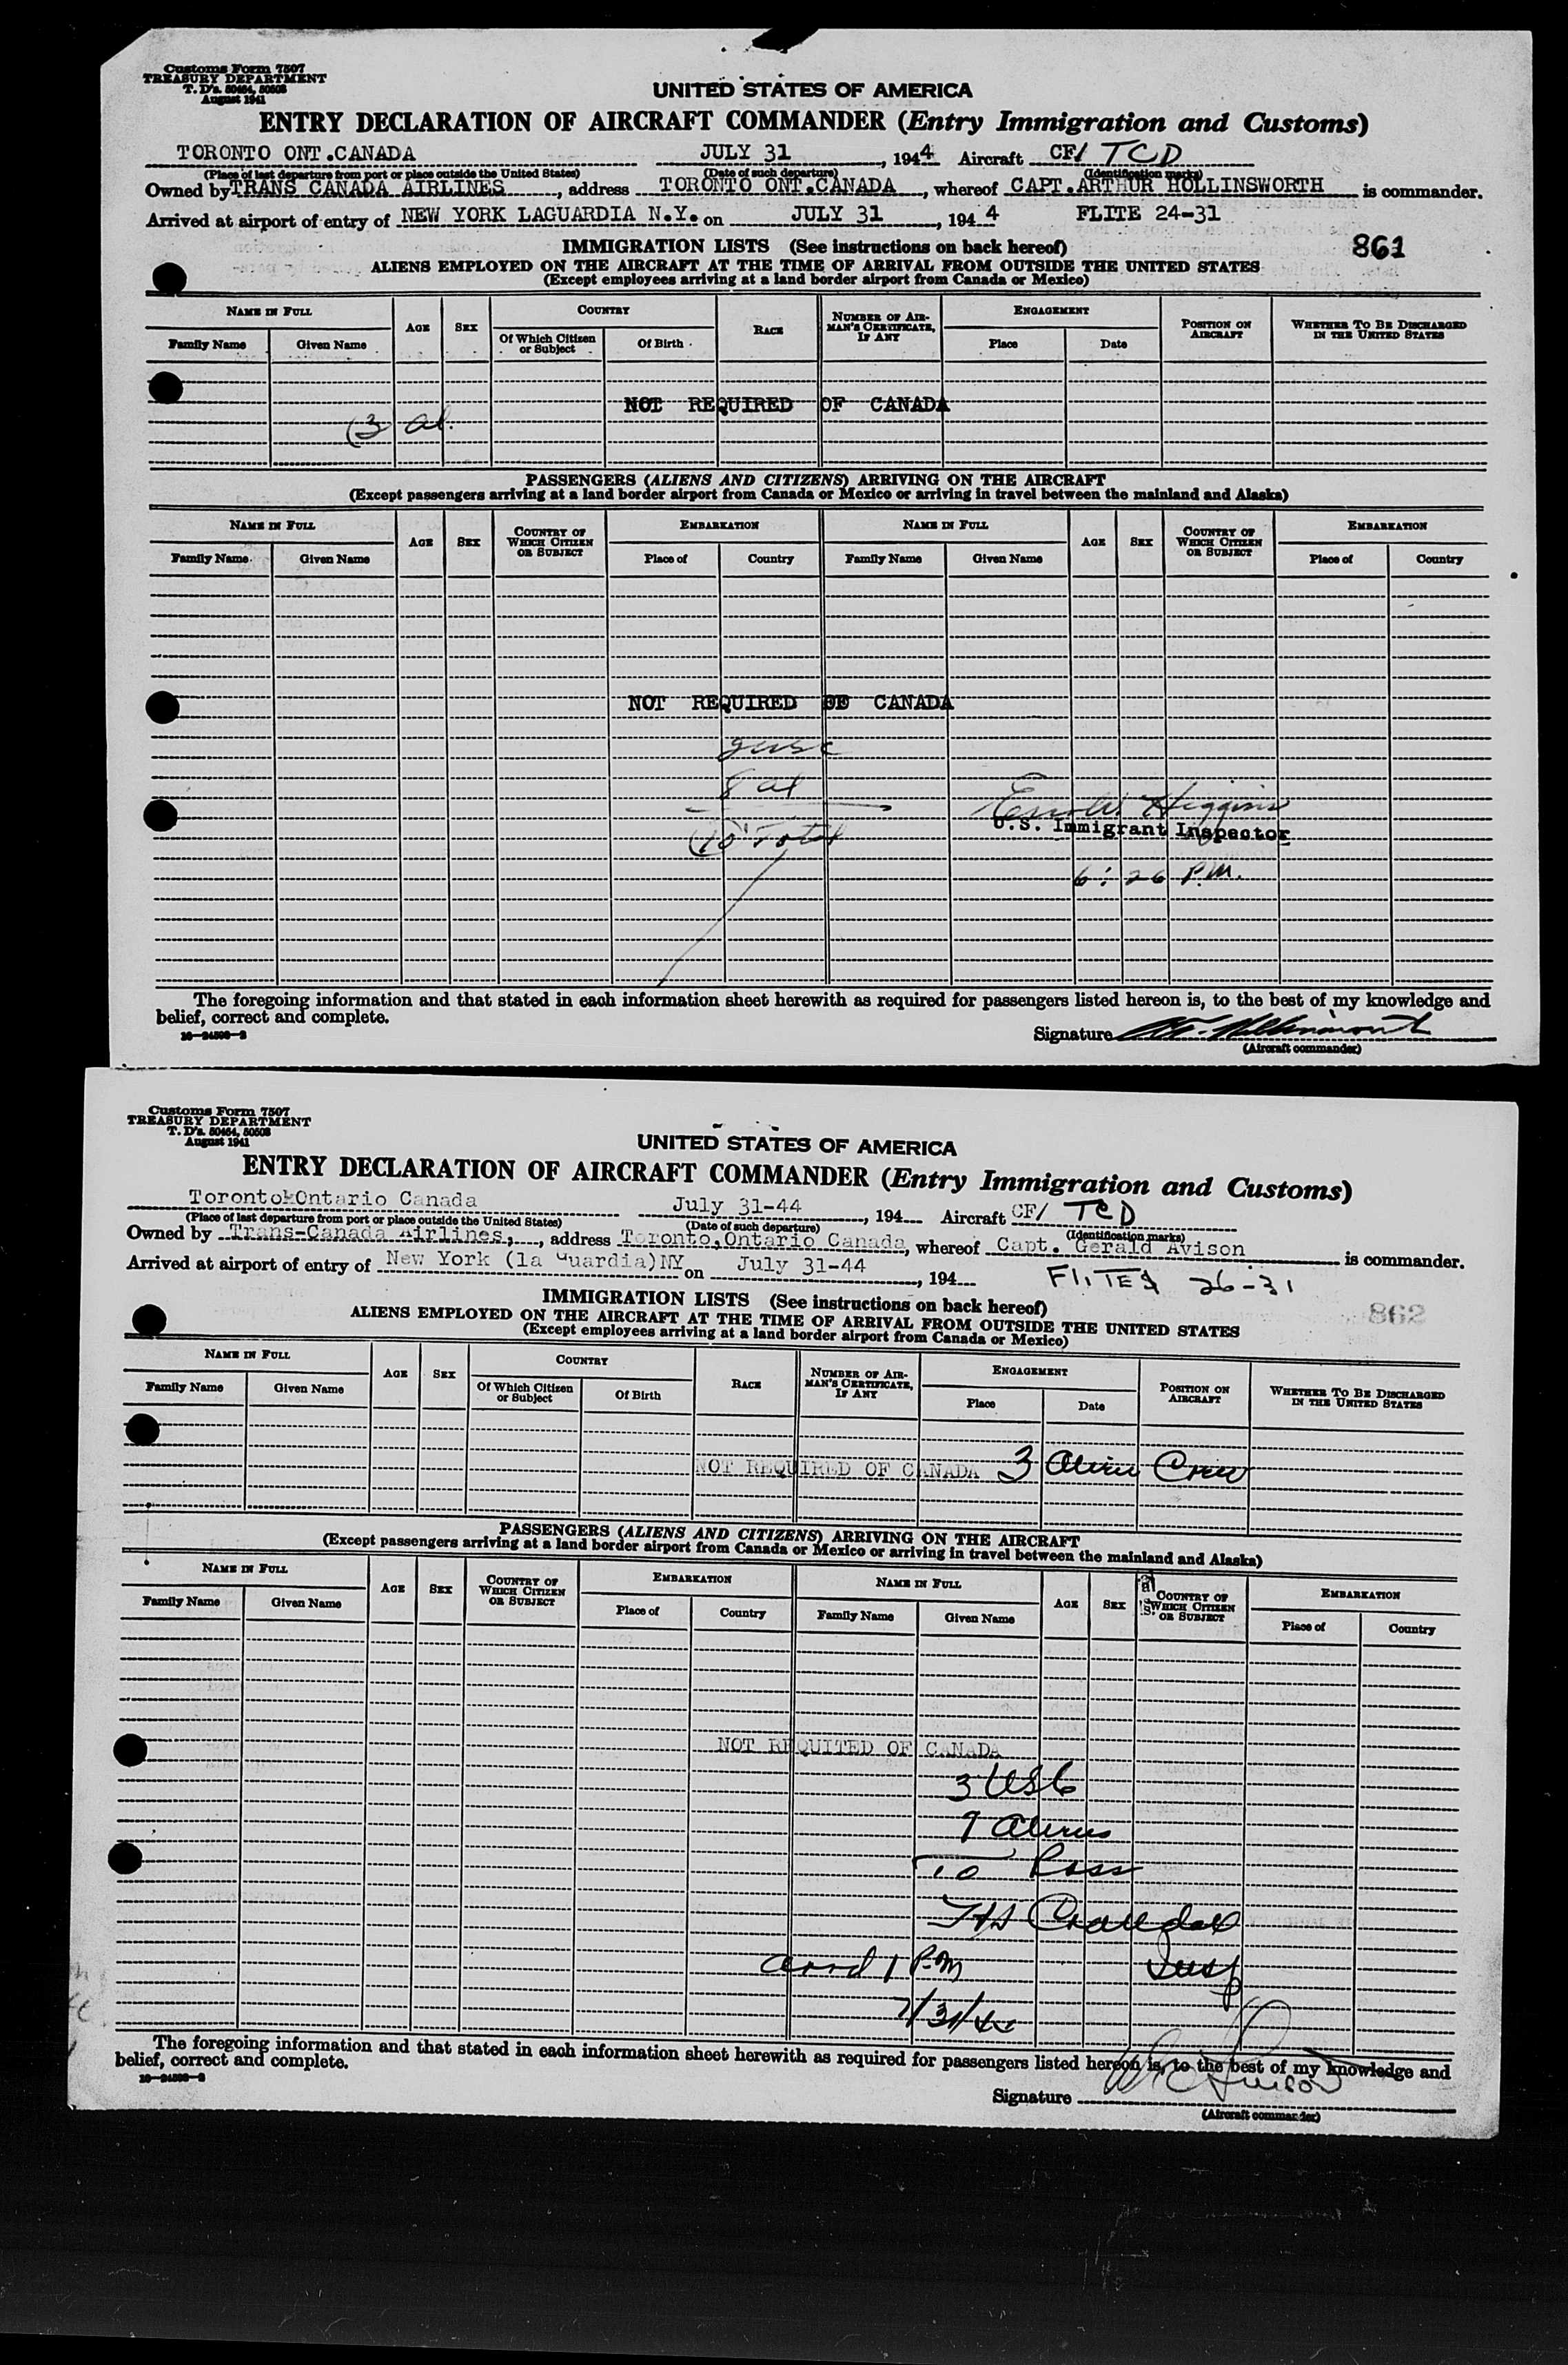 Customs Form 7507
TREASURY DEPARTMENT
T. D's. 50464, 50508
August 1941
UNITED STATES OF AMERICA
ENTRY DECLARATION OF AIRCRAFT COMMANDER (Entry Immigration and Customs)
TORONTO ONT.CANADA JULY 31, 1944 Aircraft CF/ TCD
(Place of last departure from port or place outside the United States) (Date of such departure) (Identification marks)
Owned by TRANS CANADA AIRLINES, address TORONTO ONT.CANADA, whereof CAPT.ARTHUR HOLLINSWORTH is commander.
Arrived at airport of entry of NEW YORK LAGUARDIA N.Y. on JULY 31, 194 4 FLITE 24-31
IMMIGRATION LISTS (See instructions on back hereof) 861
ALIENS EMPLOYED ON THE AIRCRAFT AT THE TIME OF ARRIVAL FROM OUTSIDE THE UNITED STATES
(Except employees arriving at a land border airport from Canada or Mexico)
NAME IN FULL AGE SEX COUNTRY RACE NUMBER OF AIR-MAN'S CERTIFICATE, IF ANY ENGAGEMENT POSITION ON AIRCRAFT WHETHER TO BE DISCHARGED IN THE UNITED STATES
Family Name Given Name Of Which Citizen or Subject Of Birth Place Date
NOT REQUIRED OF CANADA
(3 al.
PASSENGERS (ALIENS AND CITIZENS) ARRIVING ON THE AIRCRAFT
(Except passengers arriving at a land border airport from Canada or Mexico or arriving in travel between the mainland and Alaska)
NAME IN FULL AGE SEX COUNTRY OF WHICH CITIZEN OR SUBJECT EMBARKATION NAME IN FULL AGE SEX COUNTRY OF WHICH CITIZEN OR SUBJECT EMBARKATION
Family Name Given Name Place of Country Family Name Given Name Place of Country
NOT REQUIRED OF CANADA
2 usc
8 al
(10 Total
Higgins
U.S. Immigrant Inspector
6:26 P.M.
The foregoing information and that stated in each information sheet herewith as required for passengers listed hereon is, to the best of my knowledge and
belief, correct and complete.
16-24598-2
Signature
(Aircraft commander)
Customs Form 7507
TREASURY DEPARTMENT
T. D's. 50464, 50508
August 1941
UNITED STATES OF AMERICA
ENTRY DECLARATION OF AIRCRAFT COMMANDER (Entry Immigration and Customs)
Toronto Ontario Canada July 31-44, 194 Aircraft CF/ TCD
(Place of last departure from port or place outside the United States) (Date of such departure) (Identification marks)
Owned by Trans-Canada Airlines, address Toronto,Ontario Canada, whereof Capt. Gerald Avison is commander.
Arrived at airport of entry of New York (la Guardia)NY on July 31-44, 194 26-31
IMMIGRATION LISTS (See instructions on back hereof) 862
ALIENS EMPLOYED ON THE AIRCRAFT AT THE TIME OF ARRIVAL FROM OUTSIDE THE UNITED STATES
(Except employees arriving at a land border airport from Canada or Mexico)
NAME IN FULL AGE SEX COUNTRY RACE NUMBER OF AIR-MAN'S CERTIFICATE, IF ANY ENGAGEMENT POSITION ON AIRCRAFT WHETHER TO BE DISCHARGED IN THE UNITED STATES
Family Name Given Name Of Which Citizen or Subject Of Birth Place Date
NOT REQUIRED OF CANADA 3 Alien Crew
PASSENGERS (ALIENS AND CITIZENS) ARRIVING ON THE AIRCRAFT
(Except passengers arriving at a land border airport from Canada or Mexico or arriving in travel between the mainland and Alaska)
NAME IN FULL AGE SEX COUNTRY OF WHICH CITIZEN OR SUBJECT EMBARKATION NAME IN FULL AGE SEX COUNTRY OF WHICH CITIZEN OR SUBJECT EMBARKATION
Family Name Given Name Place of Country Family Name Given Name Place of Country
NOT REQUITED OF CANADA
3 USC
7 Aliens
10 Pass
Insp
arrd 1 P.M
7/31/44
The foregoing information and that stated in each information sheet herewith as required for passengers listed hereon is, to the best of my knowledge and
belief, correct and complete.
16-24598-2
Signature
(Aircraft commander)